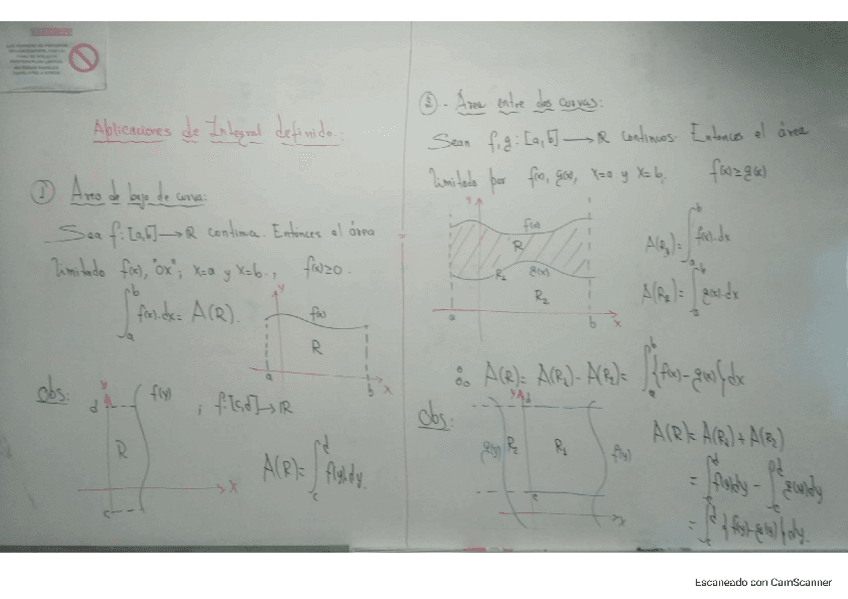 Aplicaciones de Integral definido.
① Area de bajo de curva:
Sea f:[a,b]→R continua. Entonces el área
limitado f(x), "ox"; x=a y x=b., f(x)≥0.
∫ₐᵇ f(x).dx = A(R).
y
f(x)
R
a b x
Obs: y f(y) ; f:[c,d]→R
d
R
A(R)= ∫_c^d f(y)dy.
x
c
② - Área entre dos curvas:
Sean f,g:[a,b]→R continuos. Entonces el área
limitado por f(x), g(x), x=a y x=b. f(x)≥g(x)
y
f(x)
R
g(x)
R₁
R₂
a b x
A(R₁)= ∫ₐᵇ f(x).dx
A(R₂)= ∫ₐᵇ g(x).dx
∴ A(R)= A(R₁)-A(R₂)= ∫ₐᵇ {f(x)-g(x)}dx
Obs:
y d
g(y) R₂ R₁ f(y)
c
x
A(R)= A(R₁)+A(R₂)
= ∫_c^d f(y)dy - ∫_c^d g(y)dy
= ∫_c^d {f(y)-g(y)}dy.
Escaneado con CamScanner